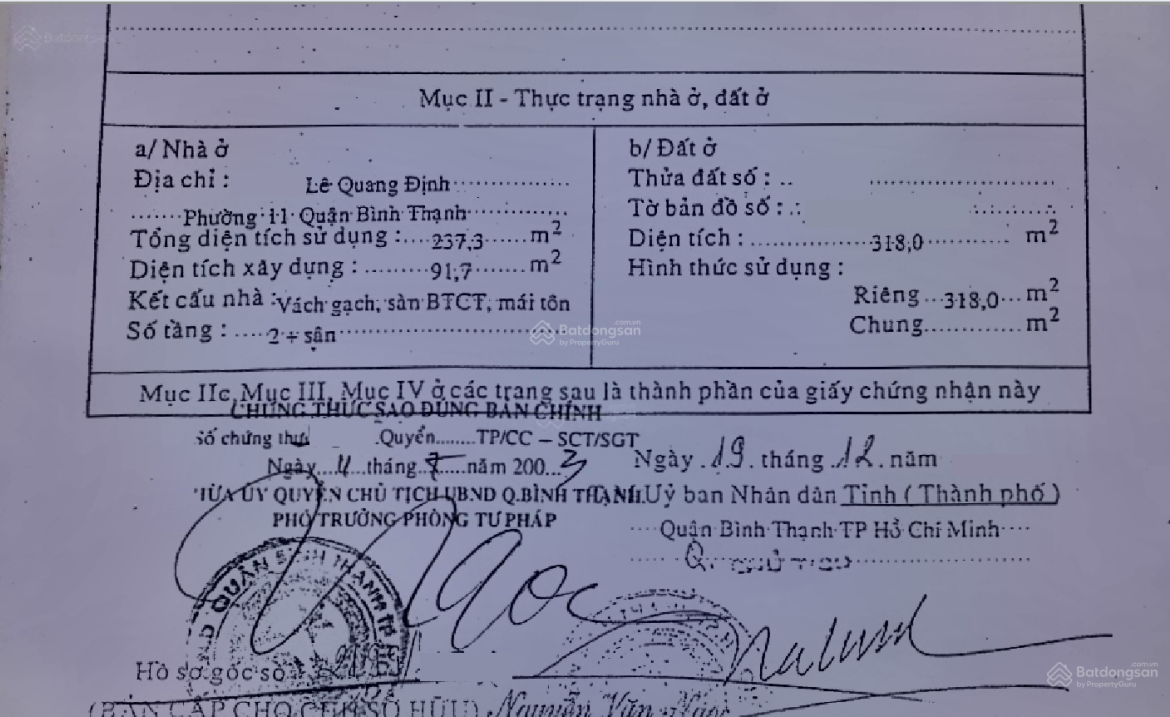 Mục II - Thực trạng nhà ở, đất ở
a/ Nhà ở
Địa chỉ : Lê Quang Định
Phường 11 Quận Bình Thạnh
Tổng diện tích sử dụng : 237,3 m²
Diện tích xây dựng : 91,7 m²
Kết cấu nhà : Vách gạch, sàn BTCT, mái tôn
Số tầng : 2 + sân
b/ Đất ở
Thửa đất số :
Tờ bản đồ số :
Diện tích : 318,0 m²
Hình thức sử dụng :
Riêng 318,0 m²
Chung m²
Mục IIc, Mục III, Mục IV ở các trang sau là thành phần của giấy chứng nhận này
CHỨNG THỰC SAO ĐÚNG BẢN CHÍNH
Số chứng thực Quyển........TP/CC – SCT/SGT
Ngày 11 tháng 7 năm 2003
THỪA ỦY QUYỀN CHỦ TỊCH UBND Q.BÌNH THẠNH
PHÓ TRƯỞNG PHÒNG TƯ PHÁP
Ngày 19 tháng 12 năm
Uỷ ban Nhân dân Tỉnh ( Thành phố )
Quận Bình Thạnh TP Hồ Chí Minh
Q. CHỦ TỊCH
QUẬN BÌNH THẠNH TP HỒ
Hồ sơ gốc số
(BẢN CẤP CHO CHỦ SỞ HỮU) Nguyễn Văn Ngọc
Batdongsan.com.vn
by PropertyGuru
Batdongsan.com.vn
by PropertyGuru